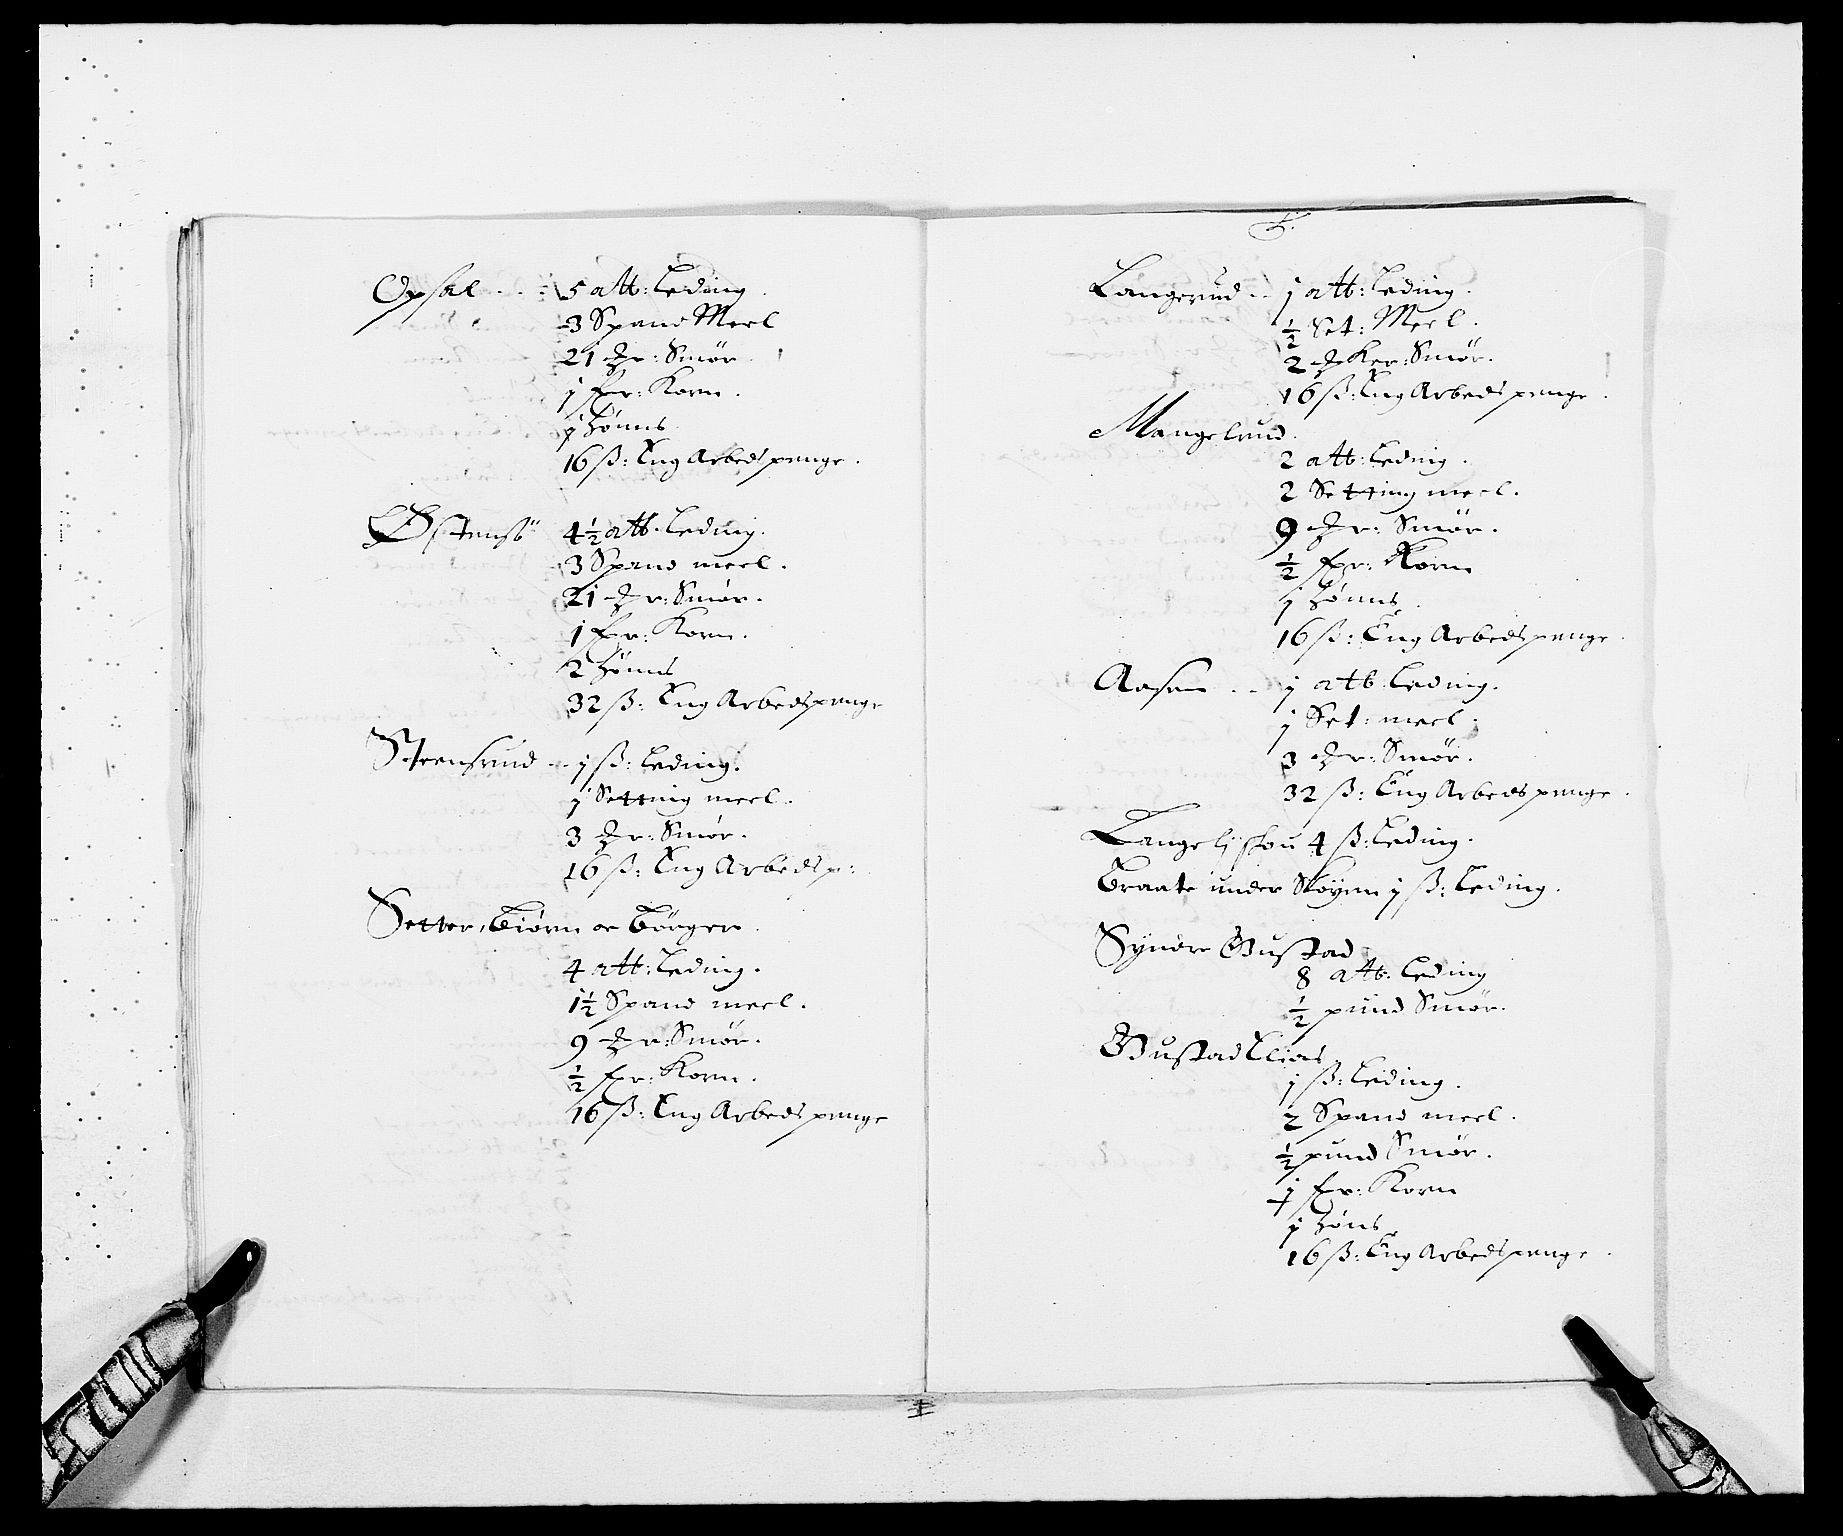 Opsal - - - 5 att: Leding.
3 Spand Meel
21 Mr: Smør.
j fr: Korn.
j Hönns.
16 ß: Eng Arbeds penge.
Østensö 4½ att: Leding.
3 Spand meel.
21 Mr: Smör.
1 fr: Korn.
2 Höns
32 ß: Eng Arbeds penge
Steensrud - - j ß: Leding.
j Setting meel.
3 Mr: Smör.
16 ß: Eng Arbeds p:
Setter, Biörn oc Börger.
4 att: Leding.
1½ Spand meel.
9 Mr: Smör.
½ fr: Korn.
16 ß: Eng Arbeds penge
Langerud - - j att: Leding.
½ Set: Meel.
2 Mker: Smör.
16 ß: Eng Arbeds penge.
Mangelrud.
2 att: Leding.
2 Setting meel.
9 Mr: Smör.
½ fr: Korn
j Hönns.
16 ß: Eng Arbeds penge.
Aasen - - j att: Leding.
j Set: meel.
3 Mr: Smör.
32 ß: Eng Arbeds penge.
Langelj skou 4 ß: Leding.
Braate under Skøyen j ß: Leding.
Syndre Gustad
8 att: Leding
½ pund Smör.
Gustad Elias
j ß: Leding.
2 Spand meel.
½ pund Smör.
j fr: Korn
j Höns
16 ß: Eng Arbeds penge.